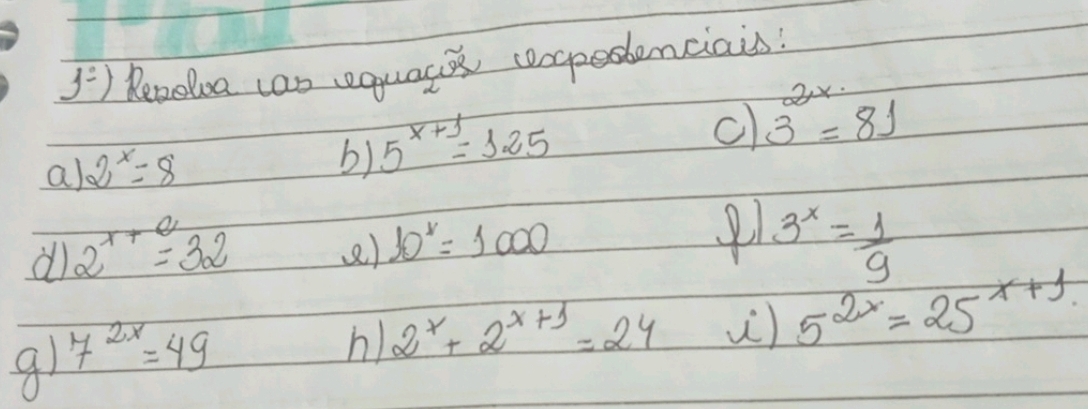 1º) Resolva as equações expodenciais:
a) 2ˣ = 8 b) 5ˣ⁺¹ = 125 c) 3²ˣ = 81
d) 2ˣ⁺ = 32 e) 10ˣ = 1000 f) 3ˣ = 1/9
g) 7²ˣ = 49 h) 2ˣ + 2ˣ⁺¹ = 24 i) 5²ˣ = 25ˣ⁺¹.